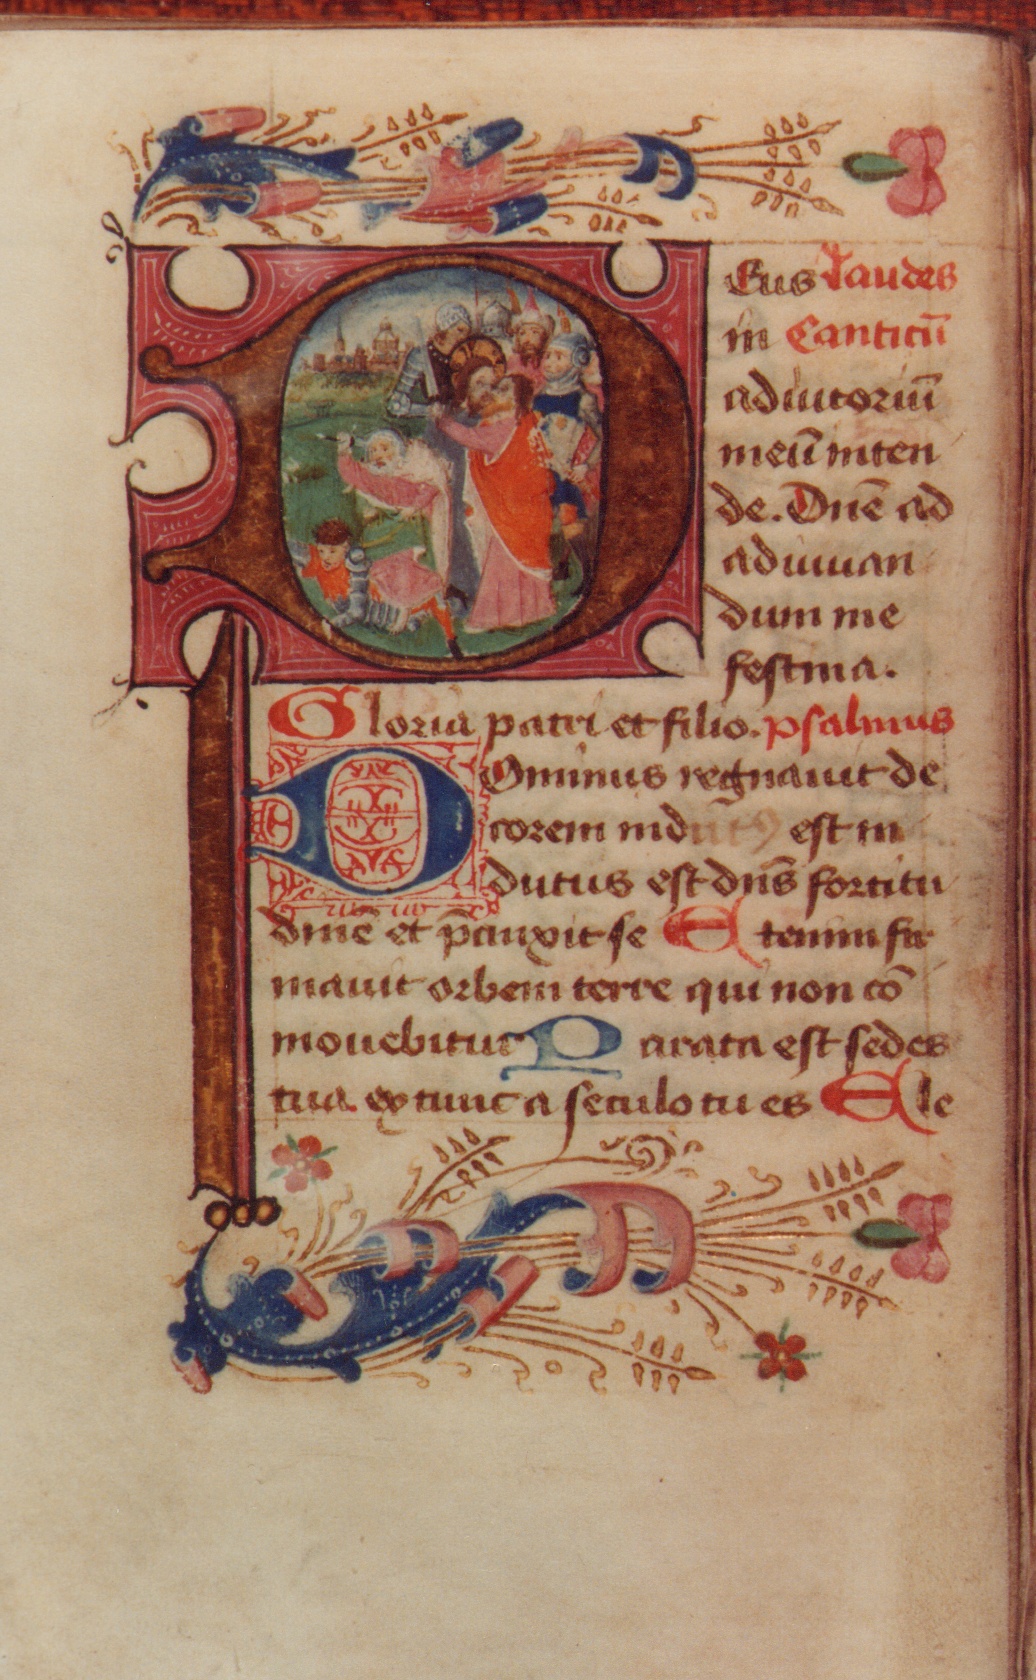 Deus laudes
in Canticũ
adiutoriũ
meũ inten
de. Dñe ad
adiuuan
dum me
festina.
Gloria patri et filio. psalmus
Dominus regnauit de
corem indutꝰ est in
dutus est dñs fortitu
dinẽ et p̃cinxit se Etenim fir
mauit orbem terre qui non cõ
mouebitur Parata est sedes
tua ex tunc a seculo tu es Ele